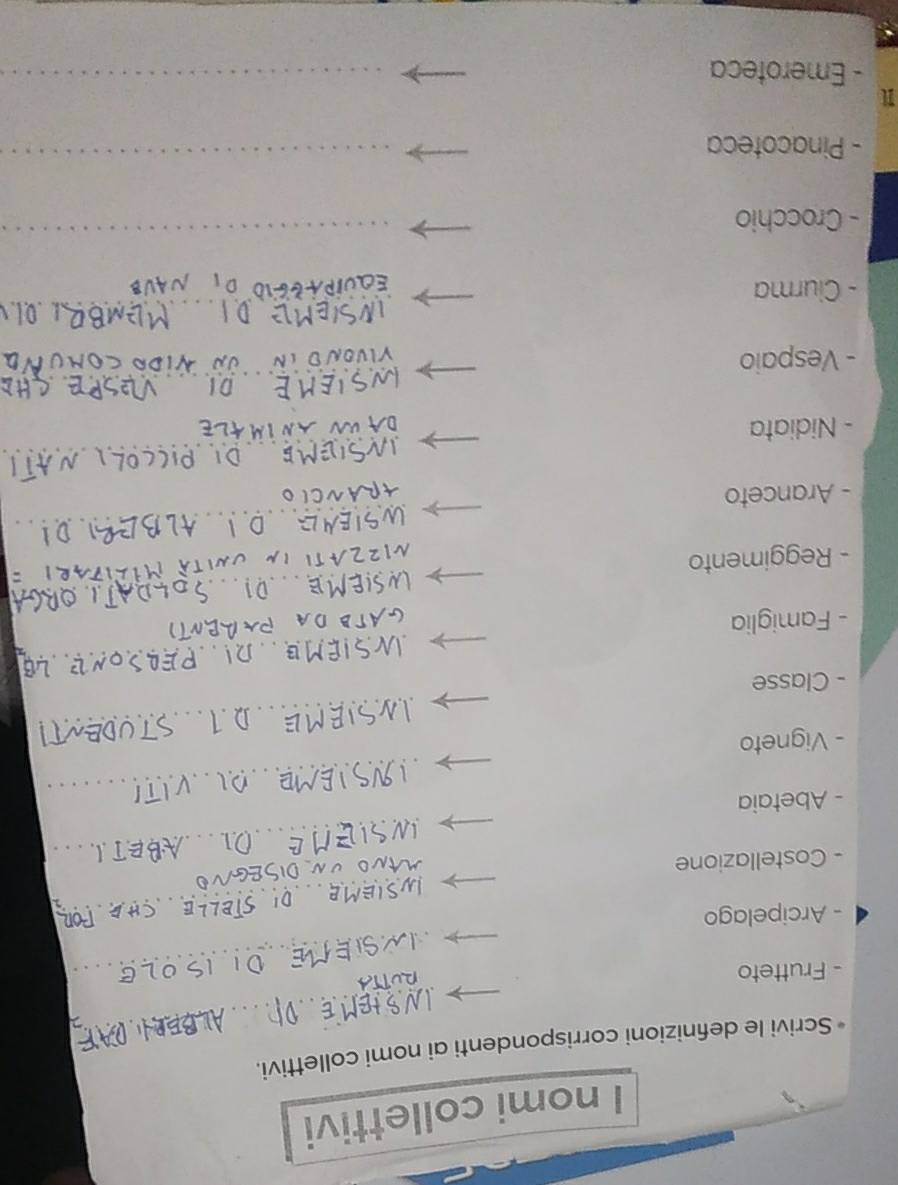 I nomi collettivi
• Scrivi le definizioni corrispondenti ai nomi collettivi.
- Frutteto → INSIEME DI ALBERI DA F=
RUTTA
- Arcipelago → INSIEME DI ISOLE
- Costellazione → INSIEME DI STELLE CHE FOR=
MANO UN DISEGNO
- Abetaia → INSIEME DI ABETI
- Vigneto → INSIEME DI VITI
- Classe → INSIEME DI STUDENTI
- Famiglia → INSIEME DI PERSONE LE=
GATE DA PARENTI
- Reggimento → INSIEME DI SOLDATI ORGA
NIZZATI IN UNITÀ MILITARI =
- Aranceto → INSIEME DI ALBERI DI
ARANCIO
- Nidiata → INSIEME DI PICCOLI NATI
DA UN ANIMALE
- Vespaio → INSIEME DI VESPE CHE
VIVONO IN UN NIDO COMUNE
- Ciurma → INSIEME DI MEMBRI DI
EQUIPAGGIO DI NAVE
- Crocchio →
- Pinacoteca →
- Emeroteca →